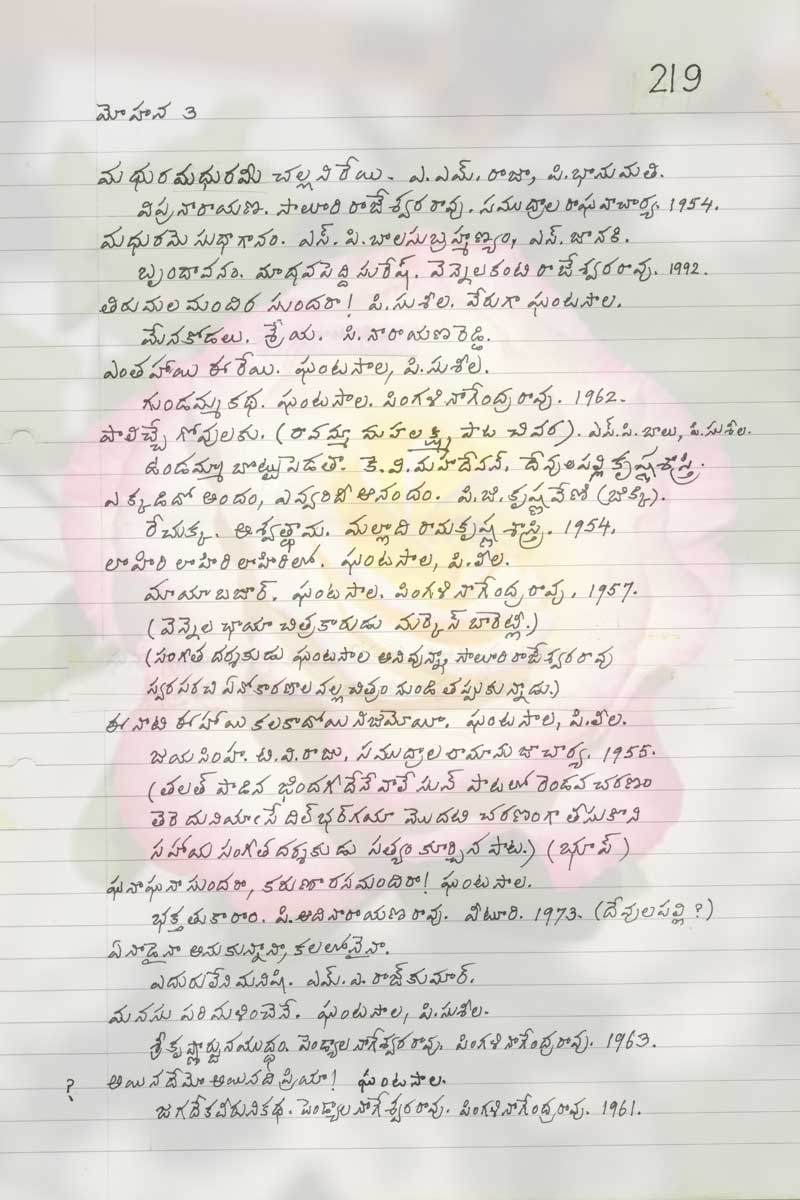 219
మోహన 3
మధురమధురమీ చల్లనిరేయి. ఎ.ఎమ్. రాజా, పి.భానుమతి.
విప్రనారాయణ. సాలూరి రాజేశ్వరరావు. సముద్రాల రాఘవాచార్య. 1954.
మధురమె సుధాగానం. ఎస్.పి.బాలసుబ్రహ్మణ్యం, ఎస్.జానకి.
బృందావనం. మాధవపెద్ది సురేష్. వెన్నెలకంటి రాజేశ్వరరావు. 1992.
తిరుమల మందిర సుందరా! పి.సుశీల. వేరుగా ఘంటసాల.
మేనకోడలు. శ్రేయ. సి.నారాయణరెడ్డి.
ఎంతహాయి ఈ రేయి. ఘంటసాల, పి.సుశీల.
గుండమ్మ కథ. ఘంటసాల. పింగళి నాగేంద్రరావు. 1962.
పాలిచ్చే గోవులకు. (రావమ్మా మహలక్ష్మి పాట చివర). ఎస్.పి.బాలు, పి.సుశీల.
ఉండమ్మా బొట్టుపెడతా. కె.వి.మహదేవన్. దేవులపల్లి కృష్ణశాస్త్రి.
ఎక్కడిదో అందం, ఎవ్వరిదీ ఆనందం. పి.జి.కృష్ణవేణి (జిక్కి).
రేచుక్క. అశ్వత్థామ. మల్లాది రామకృష్ణ శాస్త్రి. 1954.
లాహిరి లాహిరి లాహిరిలో. ఘంటసాల, పి.లీల.
మాయాబజార్. ఘంటసాల. పింగళి నాగేంద్రరావు. 1957.
(వెన్నెల ఛాయాచిత్రకారుడు మర్కస్ బార్ట్లీ.)
(సంగీత దర్శకుడు ఘంటసాల అనివున్నా, సాలూరి రాజేశ్వరరావు
స్వరపరచి ఏవోకారణాల వల్ల చిత్రం నుండి తప్పుకున్నాడు.)
ఈనాటి ఈహాయి కలకాదోయి నిజమోయి. ఘంటసాల, పి.లీల.
జయసింహ. టి.వి.రాజు. సముద్రాల రామానుజాచార్య. 1955.
(తలత్ పాడిన జిందగీదేనేవాలే సున్ పాటలో రెండవ చరణం
తెరె దునియాఁసే దిల్ భర్ గయా మొదటి చరణంగా తీసుకొని
సహాయ సంగీతదర్శకుడు సత్యం కూర్చిన పాట.) (భూప్)
ఘనాఘనాసుందరా, కరుణారసమందిరా! ఘంటసాల.
భక్త తుకారాం. పి.ఆదినారాయణరావు. వీటూరి. 1973. (దేవులపల్లి?)
ఏనాడైనా అనుకున్నానా, కలలోనైనా.
ఎదురులేని మనిషి. ఎమ్.ఎ.రాజ్ కుమార్.
మనసు పరిమళించెనే. ఘంటసాల, పి.సుశీల.
శ్రీకృష్ణార్జునయుద్ధం. పెండ్యాల నాగేశ్వరరావు. పింగళి నాగేంద్రరావు. 1963.
? అయినదేమో అయినది ప్రియా! ఘంటసాల.
జగదేకవీరునికథ. పెండ్యాల నాగేశ్వరరావు. పింగళి నాగేంద్రరావు. 1961.